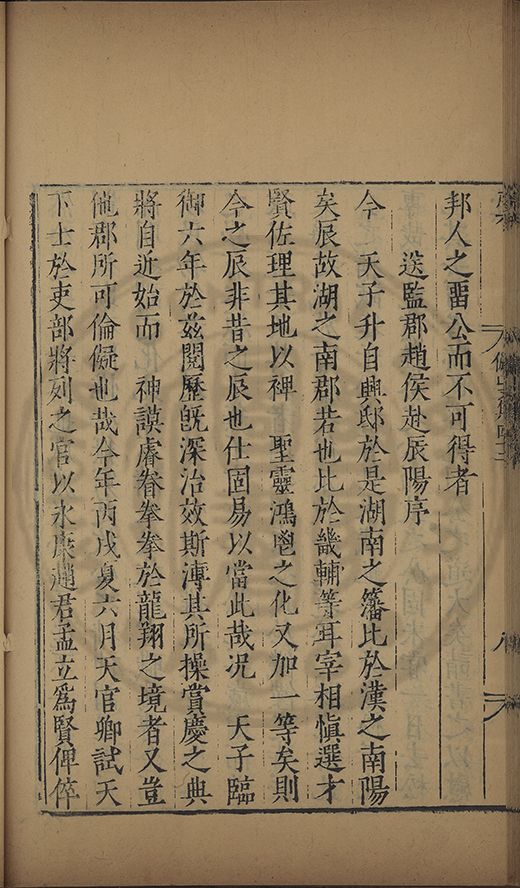 邦人之畱公而不可得者
送監郡趙侯赴辰陽序
今　天子升自興邸於是湖南之籓比於漢之南陽
矣辰故湖之南郡若也比於畿輔等耳宰相愼選才
賢佐理其地以裨　聖靈鴻鬯之化又加一等矣則
今之辰非昔之辰也仕固易以當此哉况　天子臨
御六年於兹閱歷旣深治效斯溥其所操賞慶之典
將自近始而　神謨睿眷拳拳於龍翔之境者又豈
他郡所可倫儗也哉今年丙戌夏六月天官卿試天
下士於吏部將列之官以永康趙君孟立爲賢俾倅